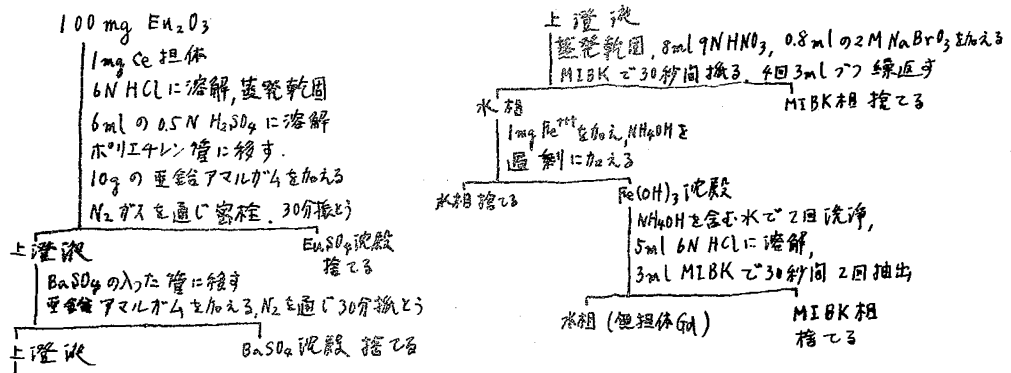 100 mg Eu2O3
1mg Ce 担体
6N HClに溶解, 蒸発乾固
6mlの0.5N H2SO4に溶解
ポリエチレン管に移す.
10gの亜鉛アマルガムを加える
N2ガスを通じ密栓. 30分振とう
上澄液
EuSO4沈殿
捨てる
BaSO4の入った管に移す
亜鉛アマルガムを加える, N2を通じ30分振とう
上澄液
BaSO4沈殿 捨てる
上澄液
蒸発乾固, 8ml 9NHNO3, 0.8mlの2M NaBrO3を加える
MIBKで30秒間振る. 4回3mlづつ繰返す
水相
MIBK相 捨てる
1mg Fe+++を加え, NH4OHを
過剰に加える
水相捨てる
Fe(OH)3沈殿
NH4OHを含む水で2回洗浄,
5ml 6N HClに溶解,
3ml MIBKで30秒間2回抽出
水相 (無担体Gd)
MIBK相
捨てる